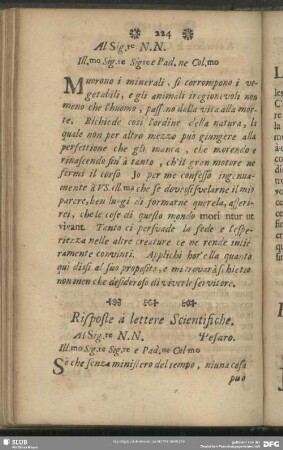 224
Al Sig.re N.N.
Ill.mo Sig.re Sig.re e Pad. ne Col.mo
Muorono i minerali, si corrompono i ve-
getabili, e gli animali iragionevoli non
meno che l'huomo, pass.no dalla vita alla mor-
te. Richiede così l'ordine della natura, la
quale non per altro mezzo può giungere alla
perfettione che gli manca, che morendo e
rinascendo fin'à tanto, ch'il gran motore ne
fermi il corso. Io per me confesso ingenua-
mente à VS. Ill.ma che se dovessi svelarne il mio
parere, ben lungi da formarne querela, asseri-
rei, che le cose di questo mondo mori ntur ut
vivant. Tanto ci persuade la fede e l'espe-
riezza nelle altre creature ce ne rende intie-
ramente convinti. Applichi hor'ella quanto
qui dissi al suo proposito, e mi trovarà schietto
non men che desideroso di viverle servitore.
Risposte à lettere Scientifiche.
Al Sig.re N. N. Pesaro.
Ill.mo Sig.re Sig.re e Pad.ne Col.mo
Sò che senza ministero del tempo, niuna cosa
può